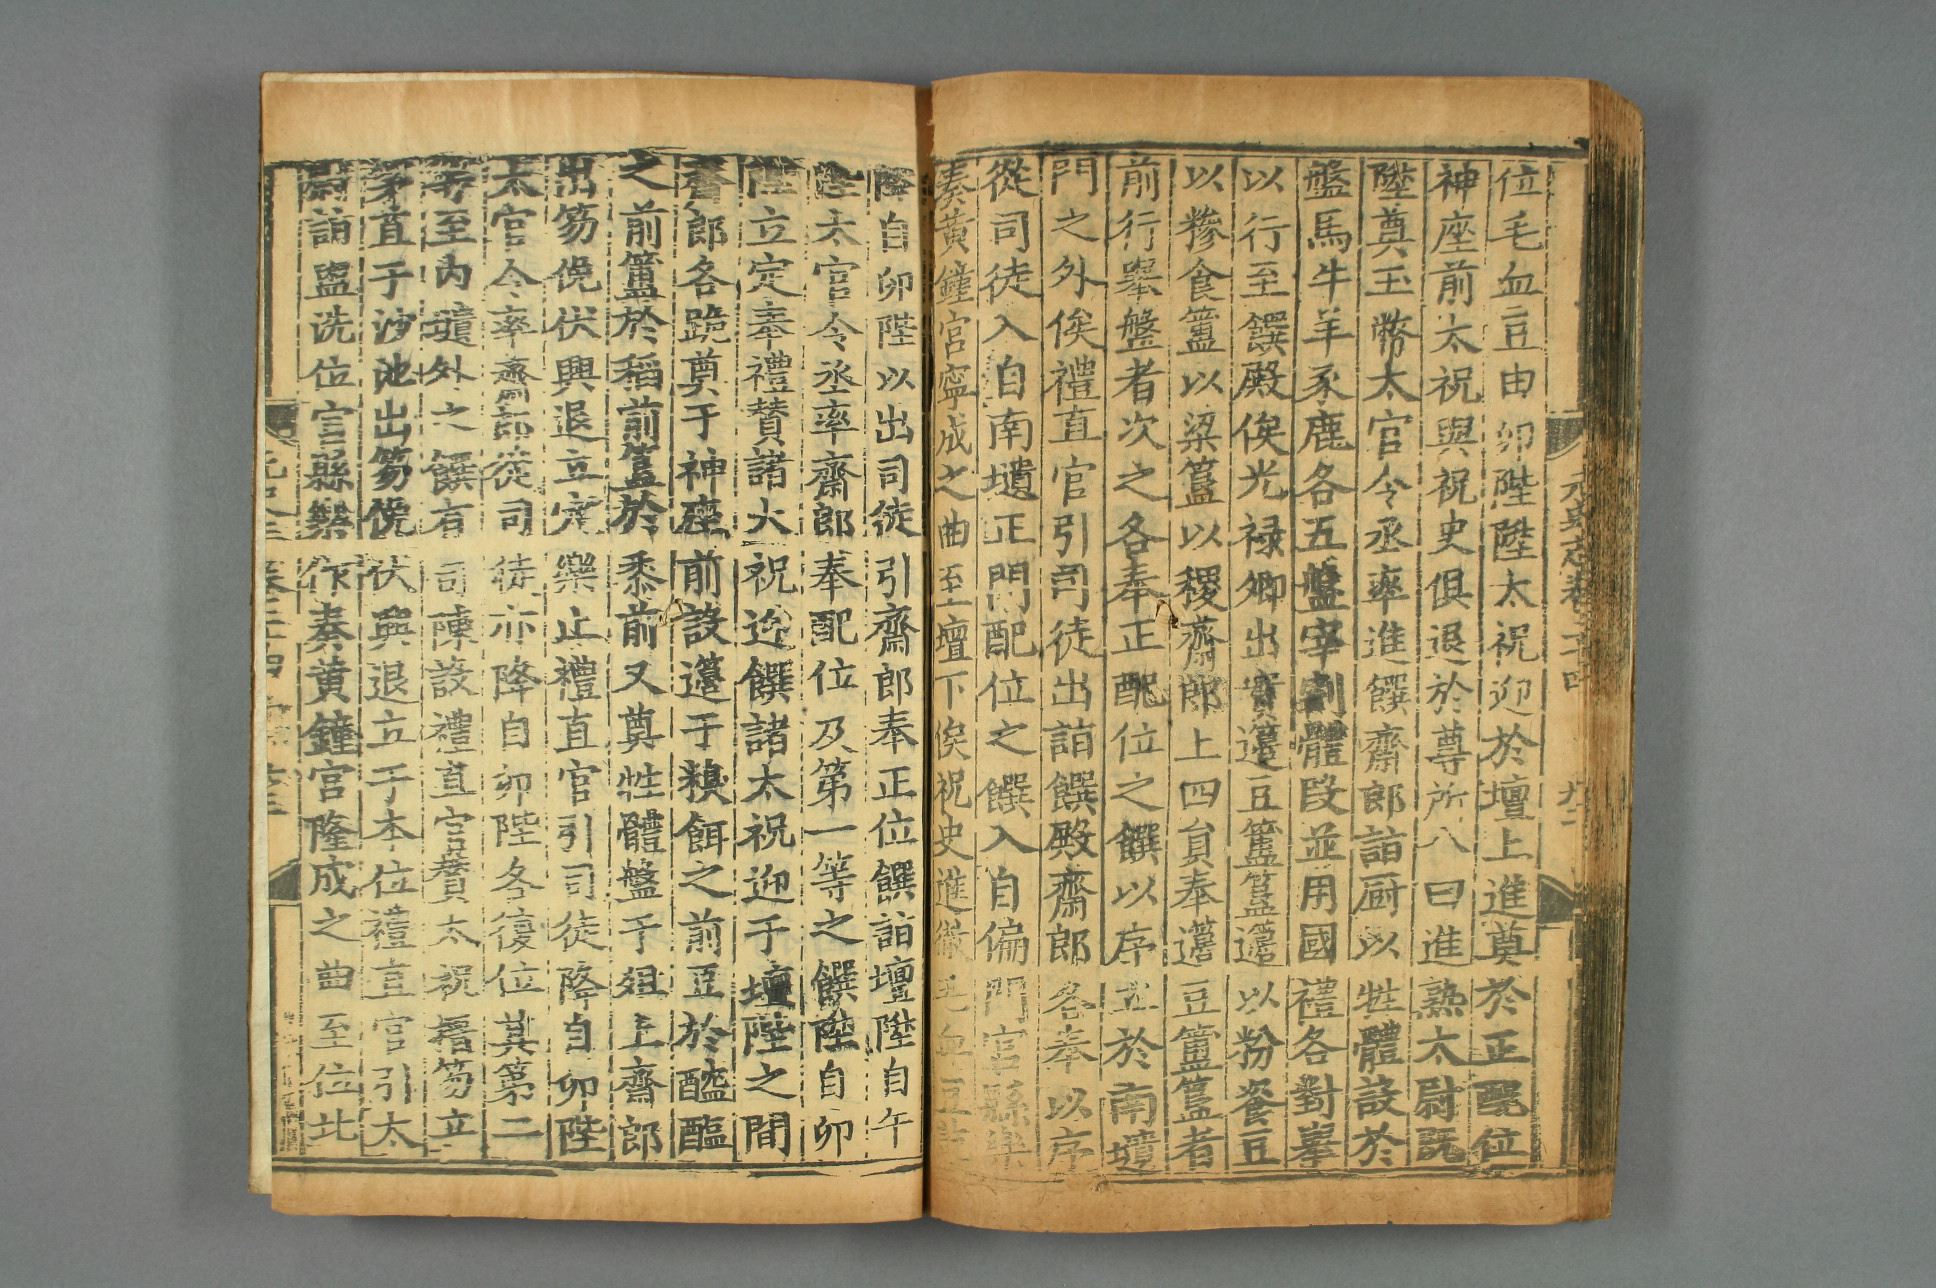 位毛血豆由卯陛陞太祝迎於壇上進奠於正配位
神座前太祝與祝史俱退於尊所八曰進熟太尉既
陞奠玉幣太官令丞率進饌齋郎詣厨以牲體設於
盤馬牛羊豕鹿各五盤宰割體段並用國禮各對舉
以行至饌殿俟光禄卿出實籩豆簠簋籩以粉餈豆
以糝食簠以粱簋以稷齋郎上四員奉籩豆簠簋者
前行舉盤者次之各奉正配位之饌以序立於南壝
門之外俟禮直官引司徒出詣饌殿齋郎各奉以序
從司徒入自南壝正門配位之饌入自偏門宮縣樂
奏黃鐘宮寧成之曲至壇下俟祝史進徹毛血豆
降自卯陛以出司徒引齋郎奉正位饌詣壇陞自午
陛太官令丞率齋郎奉配位及第一等之饌陞自卯
陛立定奉禮賛諸太祝迎饌諸太祝迎于壇陛之間
齋郎各跪奠于神座前設籩于糗餌之前豆於醓醢
之前簠於稻前簋於黍前又奠牲體盤于俎上齋郎
出笏俛伏興退立定樂止禮直官引司徒降自卯陛
太官令率齋郎從司徒亦降自卯陛各復位其第二
等至內壝外之饌有司陳設禮直官賛太祝搢笏立
茅苴于沙池出笏俛伏興退立于本位禮直官引太
尉詣盥洗位宮縣樂作奏黃鐘宮隆成之曲至位北